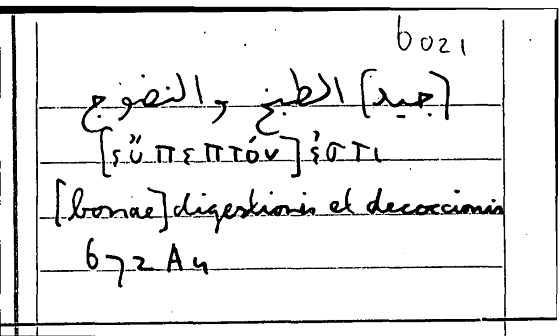 6021
(جيد) الطبخ والنضوج
[εὔπεπτόν] ἐστι
[bonae] digestionis et decoccionis
672 A4